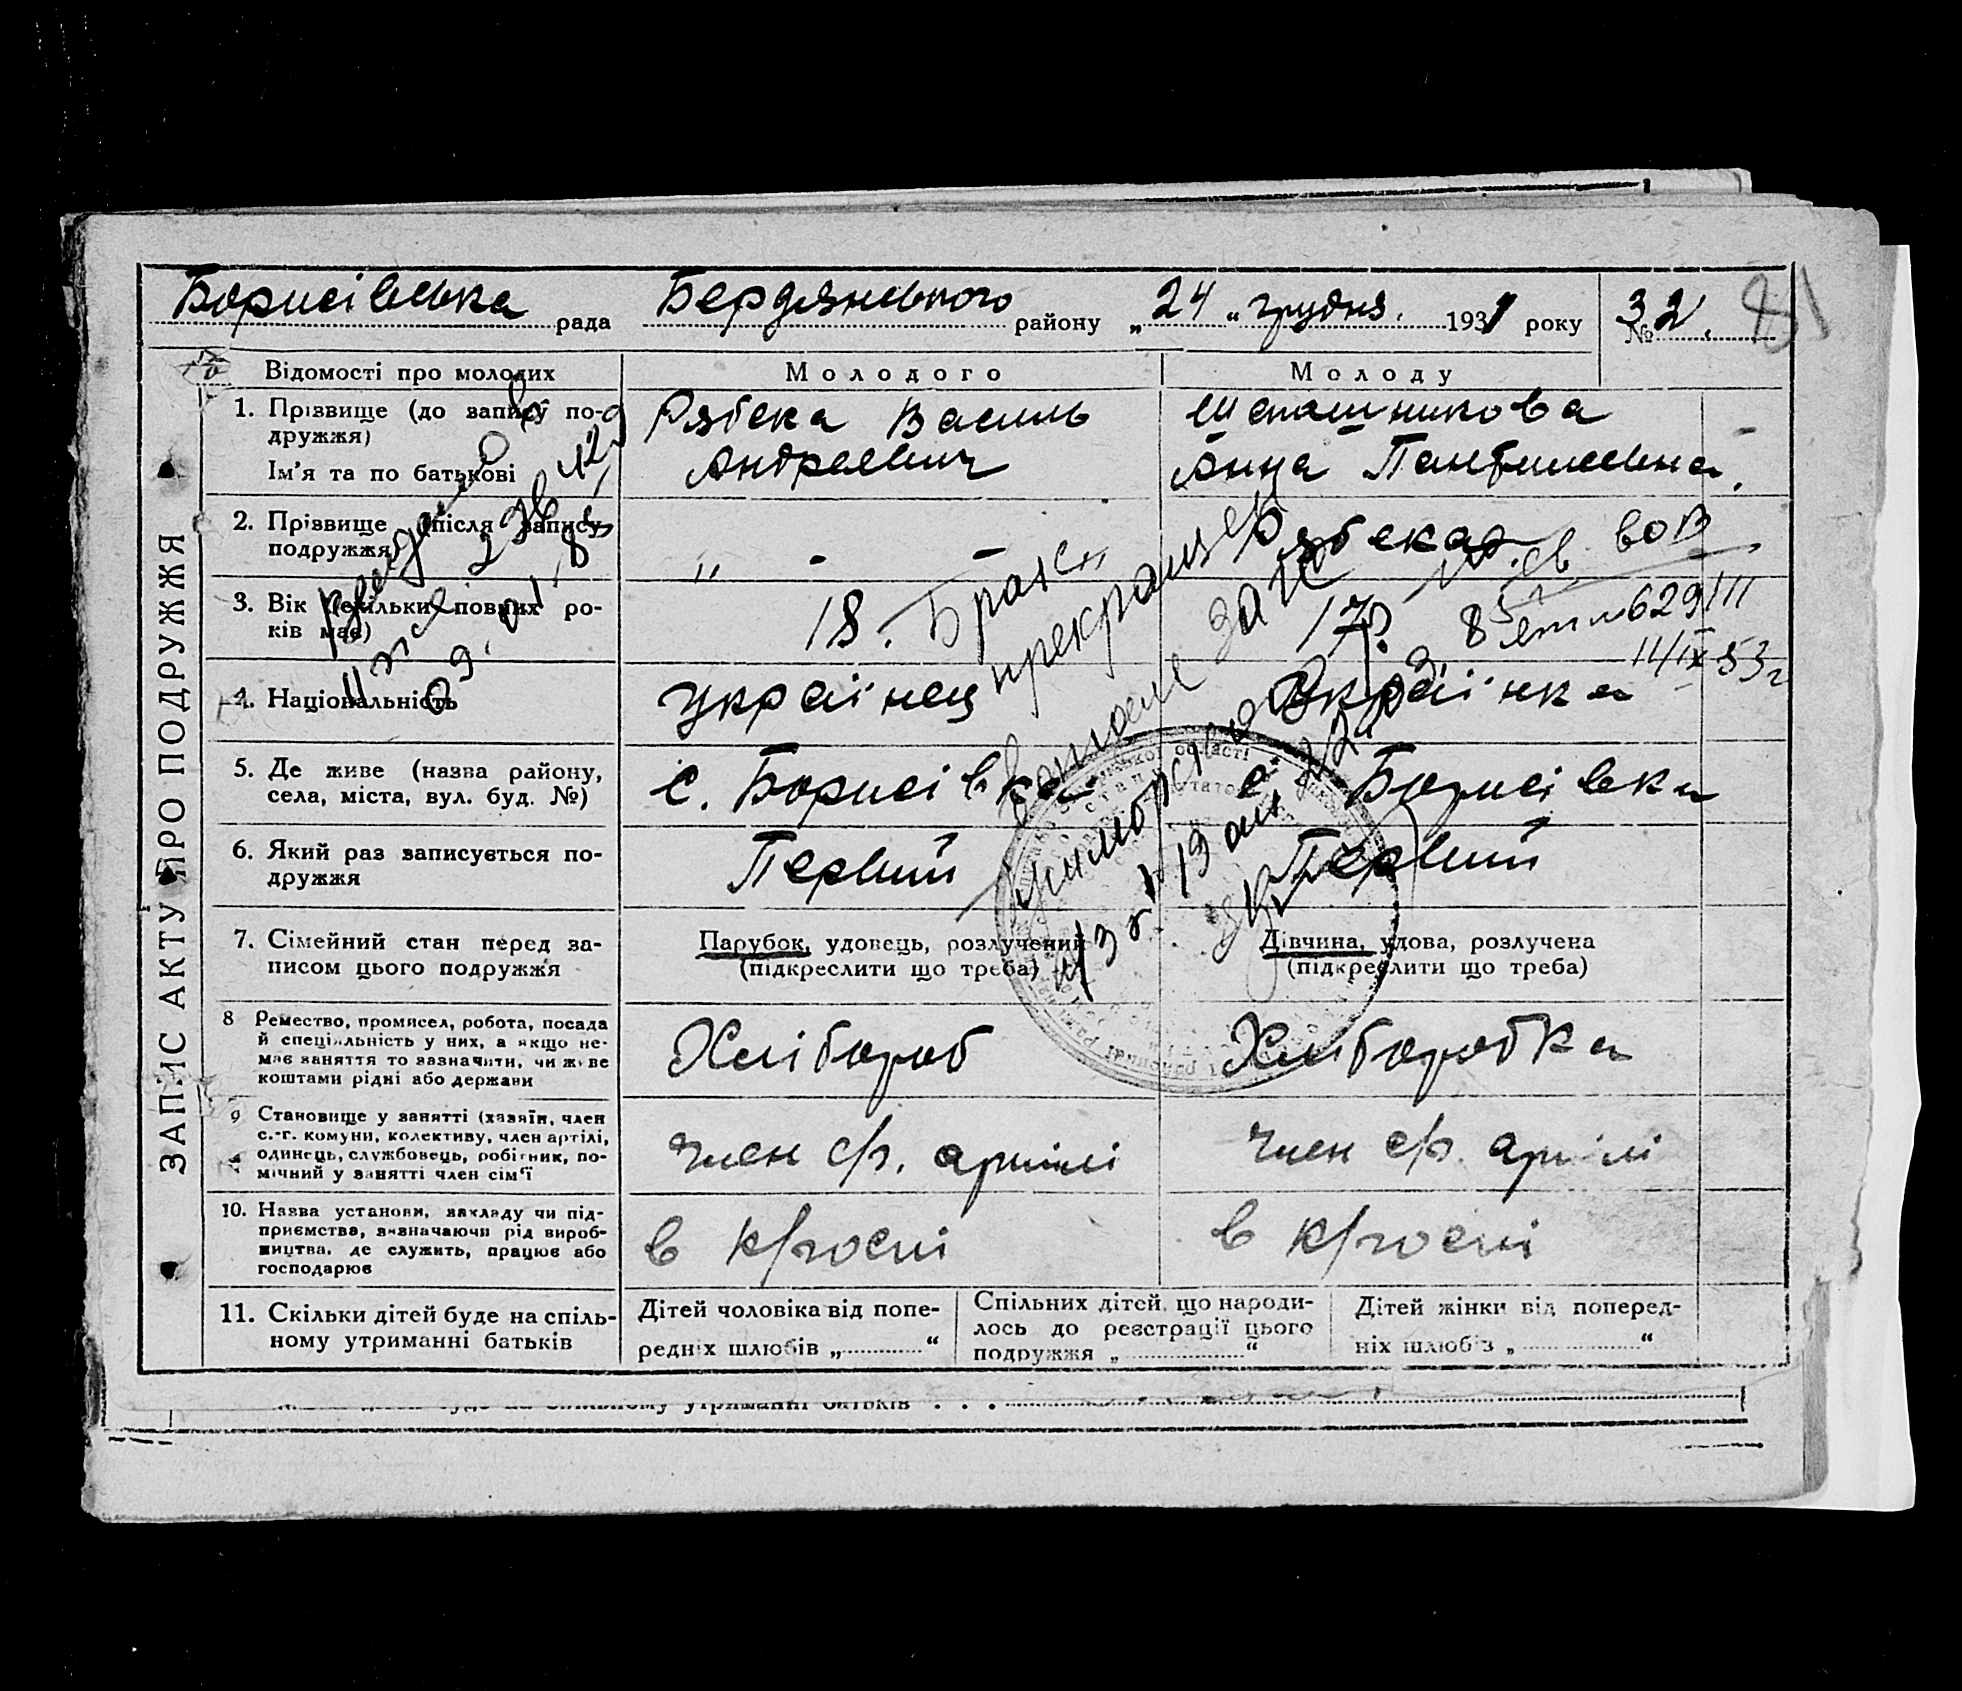 Борисівська рада Бердянського району „24“ грудня. 1931 року № 32.
81
ЗАПИС АКТУ ПРО ПОДРУЖЖЯ
Відомості про молодих Молодого Молоду
1. Прізвище (до запису по-
дружжя)
Ім'я та по батькові
Рябека Василь
Андреевич
Анна
2. Прізвище (після запису
подружжя)
„ - -
Рябекая
3. Вік (скільки повних ро-
ків має)
18. 17
Брак
прекращен
м. св. ВОВ
629111
11/IX 53г
4. Національність
українец українка
5. Де живе (назва району,
села, міста, вул. буд. №)
с. Борисівка с. Борисівка
6. Який раз записується по-
дружжя
Первий Первий
7. Сімейний стан перед за-
писом цього подружжя
Парубок, удовець, розлучений
(підкреслити що треба)
Дівчина, удова, розлучена
(підкреслити що треба)
8 Ремество, промисел, робота, посада
й спеціяльність у них, а якщо не-
має заняття то зазначити, чи живе
коштами рідні або держави
Хлібороб Хліборобка
9 Становище у занятті (хазяїн, член
с.-г. комуни, колективу, член артілі,
одинець, службовець, робітник, по-
мічний у занятті член сім'ї
член с/г. артілі член с/г. артілі
10. Назва установи, закладу чи під-
приємства, визначаючи рід вироб-
ництва, де служить, працює або
господарює
в к/госпі в к/госпі
11. Скільки дітей буде на спіль-
ному утриманні батьків
Дітей чоловіка від попе-
редніх шлюбів „ “
Спільних дітей, що народи-
лось до реєстрації цього
подружжя „ “
Дітей жінки від поперед-
ніх шлюбів „ “
утриманні батьків . . .